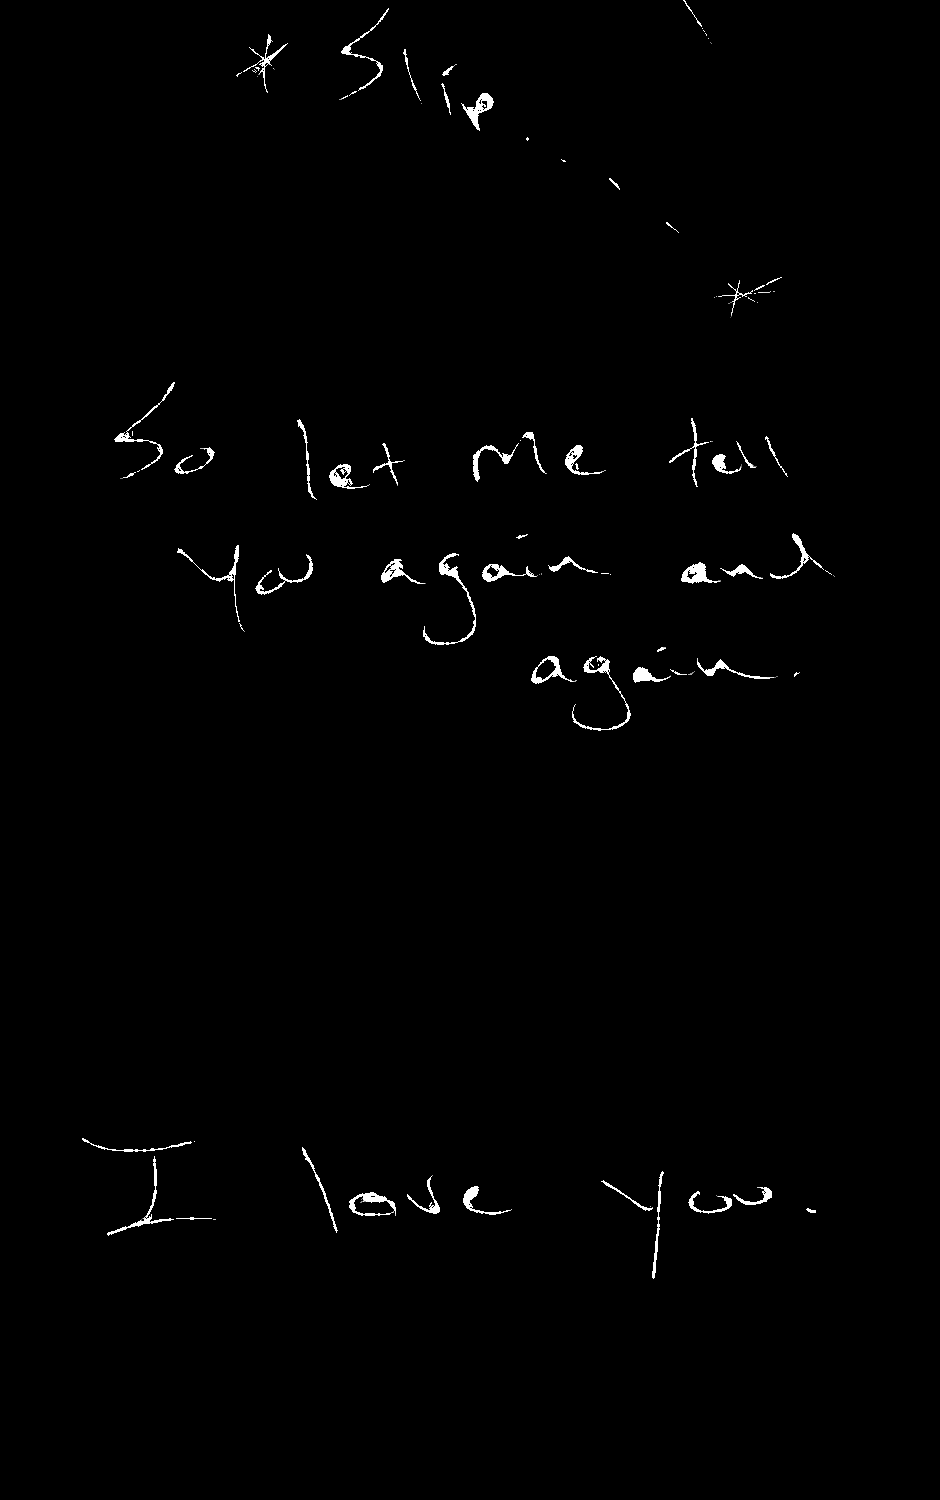 * Slip.....
*
So let me tell
you again and
again.
I love you.